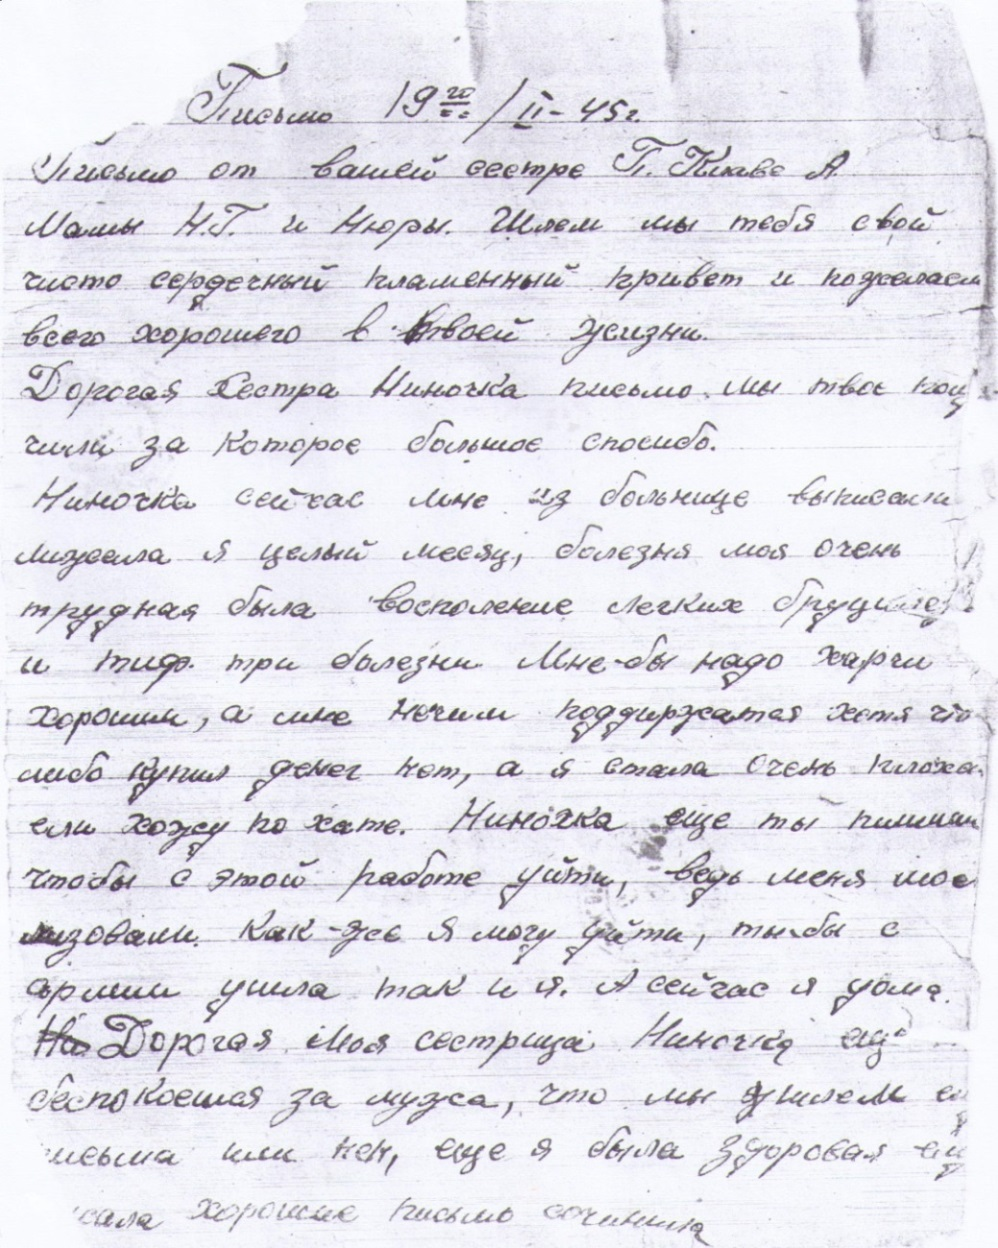 Письмо 19го/II-45г.
Письмо от вашей сестре П. Клаве А.
Мамы Н.Г. и Нюры. Шлем мы тебя свой
чисто сердечный пламенный привет и пожелаем
всего хорошего в твоей жизни.
Дорогая Сестра Ниночка письмо мы твое пол
чили за которое большое спосибо.
Ниночка сейчас мне из больнице выписали
лижала я целый месяц, болезня моя очень
трудная была восполение легких
и тиф. три болезни Мне-бы надо харчи
хорошии, а мне нечим поддиржатся хотя что
либо купил денег нет, а я стала очень плоха
ели хожу по хате. Ниночка еще ты пишиш
чтобы с этой работе уйти, ведь меня мое
лизовали. Как-же я могу уйти, ты-бы с
армии ушла так и я. А сейчас я дома.
Дорогая Моя сестрица Ниночка ещ
беспокоешся за мужа, что мы шлем ем
письма или нен, еще я была здоровая ем
исала хорошие письмо сочинила